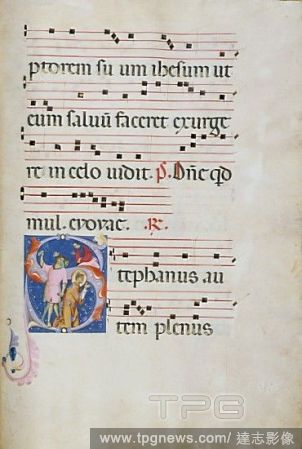 ptorem su um ihesum ut
eum saluū faceret exurge
re in celo uidit. P̄. Dn̄e qd
mul. evovae. R.
Stephanus au
tem plenus
TPG
www.tpgnews.com/ 達志影像